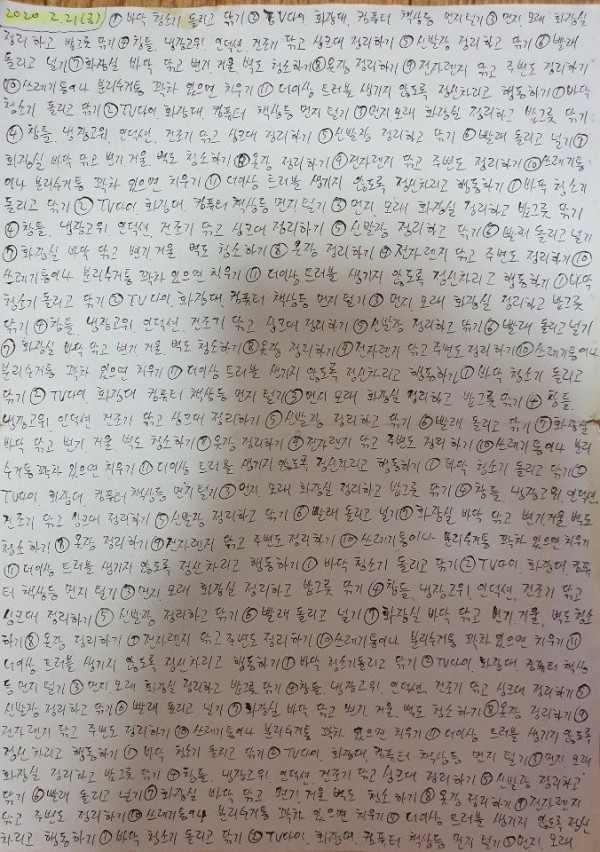 2020. 2. 21(금) ① 바닥 청소기 돌리고 닦기 ② TV다이 화장대, 컴퓨터 책상등 먼지 털기 ③ 먼지, 모래 화장실
정리하고 밥그릇 닦기 ④ 창틀, 냉장고위, 인덕션, 건조기 닦고 싱크대 정리하기 ⑤ 신발장 정리하고 닦기 ⑥ 빨래
돌리고 널기 ⑦ 화장실 바닥 닦고 변기, 거울, 벽도 청소하기 ⑧ 옷장 정리하기 ⑨ 전자렌지 닦고 주변도 정리하기
⑩ 쓰레기통이나 분리수거통 꽉차 있으면 치우기 ⑪ 더이상 트러블 생기지 않도록 정신차리고 행동하기 ① 바닥
청소기 돌리고 닦기 ② TV다이 화장대, 컴퓨터 책상등 먼지 털기 ③ 먼지 모래 화장실 정리하고 밥그릇 닦기
④ 창틀, 냉장고위, 인덕션, 건조기 닦고 싱크대 정리하기 ⑤ 신발장 정리하고 닦기 ⑥ 빨래 돌리고 널기 ⑦
화장실 바닥 닦고 변기 거울, 벽도 청소하기 ⑧ 옷장 정리하기 ⑨ 전자렌지 닦고 주변도 정리하기 ⑩ 쓰레기통
이나 분리수거통 꽉차 있으면 치우기 ⑪ 더이상 트러블 생기지 않도록 정신차리고 행동하기 ① 바닥 청소기
돌리고 닦기 ② TV다이, 화장대, 컴퓨터 책상등 먼지 털기 ③ 먼지, 모래 화장실 정리하고 밥그릇 닦기
④ 창틀, 냉장고위, 인덕션, 건조기 닦고 싱크대 정리하기 ⑤ 신발장 정리하고 닦기 ⑥ 빨래 돌리고 널기
⑦ 화장실 바닥 닦고 변기 거울 벽도 청소하기 ⑧ 옷장 정리하기 ⑨ 전자렌지 닦고 주변도 정리하기 ⑩
쓰레기통이나 분리수거통 꽉차 있으면 치우기 ⑪ 더이상 트러블 생기지 않도록 정신차리고 행동하기 ① 바닥
청소기 돌리고 닦기 ② TV다이, 화장대, 컴퓨터 책상등 먼지 털기 ③ 먼지, 모래 화장실 정리하고 밥그릇
닦기 ④ 창틀, 냉장고위, 인덕션, 건조기 닦고 싱크대 정리하기 ⑤ 신발장 정리하고 닦기 ⑥ 빨래 돌리고 널기
⑦ 화장실 바닥 닦고 변기, 거울, 벽도 청소하기 ⑧ 옷장 정리하기 ⑨ 전자렌지 닦고 주변도 정리하기 ⑩ 쓰레기통이나
분리수거통 꽉차 있으면 치우기 ⑪ 더이상 트러블 생기지 않도록 정신차리고 행동하기 ① 바닥 청소기 돌리고
닦기 ② TV다이, 화장대 컴퓨터 책상등 먼지 털기 ③ 먼지 모래 화장실 정리하고 밥그릇 닦기 ④ 창틀,
냉장고위, 인덕션 건조기 닦고 싱크대 정리하기 ⑤ 신발장 정리하고 닦기 ⑥ 빨래 돌리고 널기 ⑦ 화장실
바닥 닦고 변기, 거울 벽도 청소하기 ⑧ 옷장 정리하기 ⑨ 전자렌지 닦고 주변도 정리하기 ⑩ 쓰레기통이나 분리
수거통 꽉차 있으면 치우기 ⑪ 더이상 트러블 생기지 않도록 정신차리고 행동하기 ① 바닥 청소기 돌리고 닦기 ②
TV다이 화장대, 컴퓨터 책상등 먼지 털기 ③ 먼지, 모래 화장실 정리하고 밥그릇 닦기 ④ 창틀, 냉장고위, 인덕션,
건조기 닦고 싱크대 정리하기 ⑤ 신발장 정리하고 닦기 ⑥ 빨래 돌리고 널기 ⑦ 화장실 바닥 닦고 변기, 거울, 벽도
청소하기 ⑧ 옷장 정리하기 ⑨ 전자렌지 닦고 주변도 정리하기 ⑩ 쓰레기통이나 분리수거통 꽉차 있으면 치우기
⑪ 더이상 트러블 생기지 않도록 정신차리고 행동하기 ① 바닥 청소기 돌리고 닦기 ② TV다이, 화장대, 컴퓨
터 책상등 먼지 털기 ③ 먼지, 모래 화장실 정리하고 밥그릇 닦기 ④ 창틀, 냉장고위, 인덕션, 건조기 닦고
싱크대 정리하기 ⑤ 신발장 정리하고 닦기 ⑥ 빨래 돌리고 널기 ⑦ 화장실 바닥 닦고 변기, 거울, 벽도 청소
하기 ⑧ 옷장 정리하기 ⑨ 전자렌지 닦고 주변도 정리하기 ⑩ 쓰레기통이나 분리수거통 꽉차 있으면 치우기 ⑪
더이상 트러블 생기지 않도록 정신차리고 행동하기 ① 바닥 청소기돌리고 닦기 ② TV다이, 화장대, 컴퓨터 책상
등 먼지 털기 ③ 먼지, 모래 화장실 정리하고 밥그릇 닦기 ④ 창틀, 냉장고위, 인덕션, 건조기 닦고 싱크대 정리하기 ⑤
신발장 정리하고 닦기 ⑥ 빨래 돌리고 널기 ⑦ 화장실 바닥 닦고 변기, 거울, 벽도 청소하기 ⑧ 옷장 정리하기 ⑨
전자렌지 닦고 주변도 정리하기 ⑩ 쓰레기통이나 분리수거통 꽉차 있으면 치우기 ⑪ 더이상 트러블 생기지 않도록
정신차리고 행동하기 ① 바닥 청소기 돌리고 닦기 ② TV다이, 화장대, 컴퓨터 책상등 먼지 털기 ③ 먼지 모래
화장실 정리하고 밥그릇 닦기 ④ 창틀, 냉장고위, 인덕션, 건조기 닦고 싱크대 정리하기 ⑤ 신발장 정리하고
닦기 ⑥ 빨래 돌리고 널기 ⑦ 화장실 바닥 닦고 변기, 거울 벽도 청소하기 ⑧ 옷장 정리하기 ⑨ 전자렌지
닦고 주변도 정리하기 ⑩ 쓰레기통이나 분리수거통 꽉차 있으면 치우기 ⑪ 더이상 트러블 생기지 않도록 정신
차리고 행동하기 ① 바닥 청소기 돌리고 닦기 ② TV다이, 화장대, 컴퓨터 책상등 먼지 털기 ③ 먼지, 모래